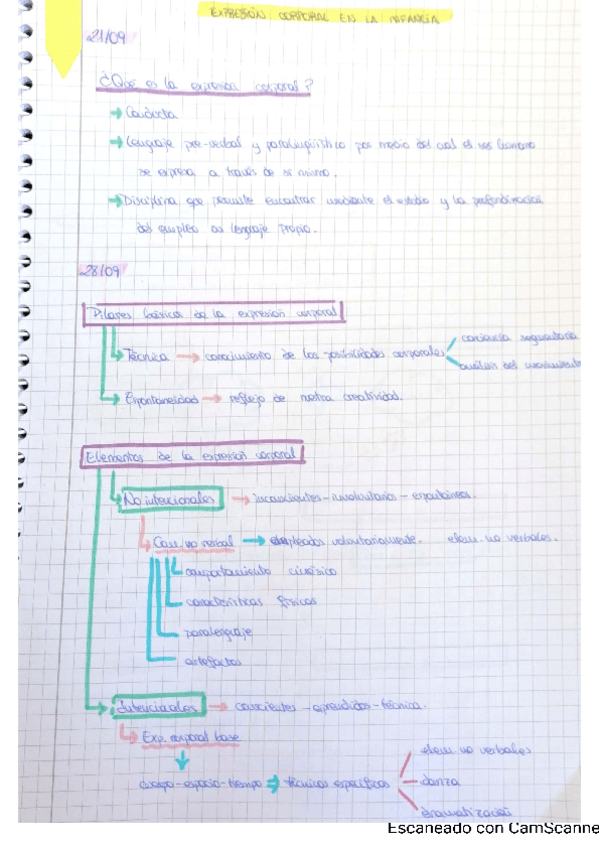 EXPRESIÓN CORPORAL EN LA INFANCIA
21/09
¿Qué es la expresión corporal?
→ Conducta
→ Lenguaje pre-verbal y paralingüístico por medio del cual el ser humano
se expresa a través de si mismo.
→ Disciplina que permite encontrar mediante el estudio y la profundización
del empleo un lenguaje propio.
28/09
Pilares básicos de la expresión corporal
Técnica → conocimiento de las posibilidades corporales
conciencia segmentaria
análisis del movimiento
Espontaneidad → reflejo de nuestra creatividad.
Elementos de la expresión corporal
No intencionales → inconscientes - involuntarios - espontáneos.
Com. no verbal → empleados voluntariamente. elem. no verbales.
comportamiento cinésico
características físicas
paralenguaje
artefactos
Intencionales → conscientes - aprendidos - técnica.
Exp. corporal base
cuerpo - espacio - tiempo ⇒ técnicas específicas
elem. no verbales
danza
dramatización
Escaneado con CamScanne